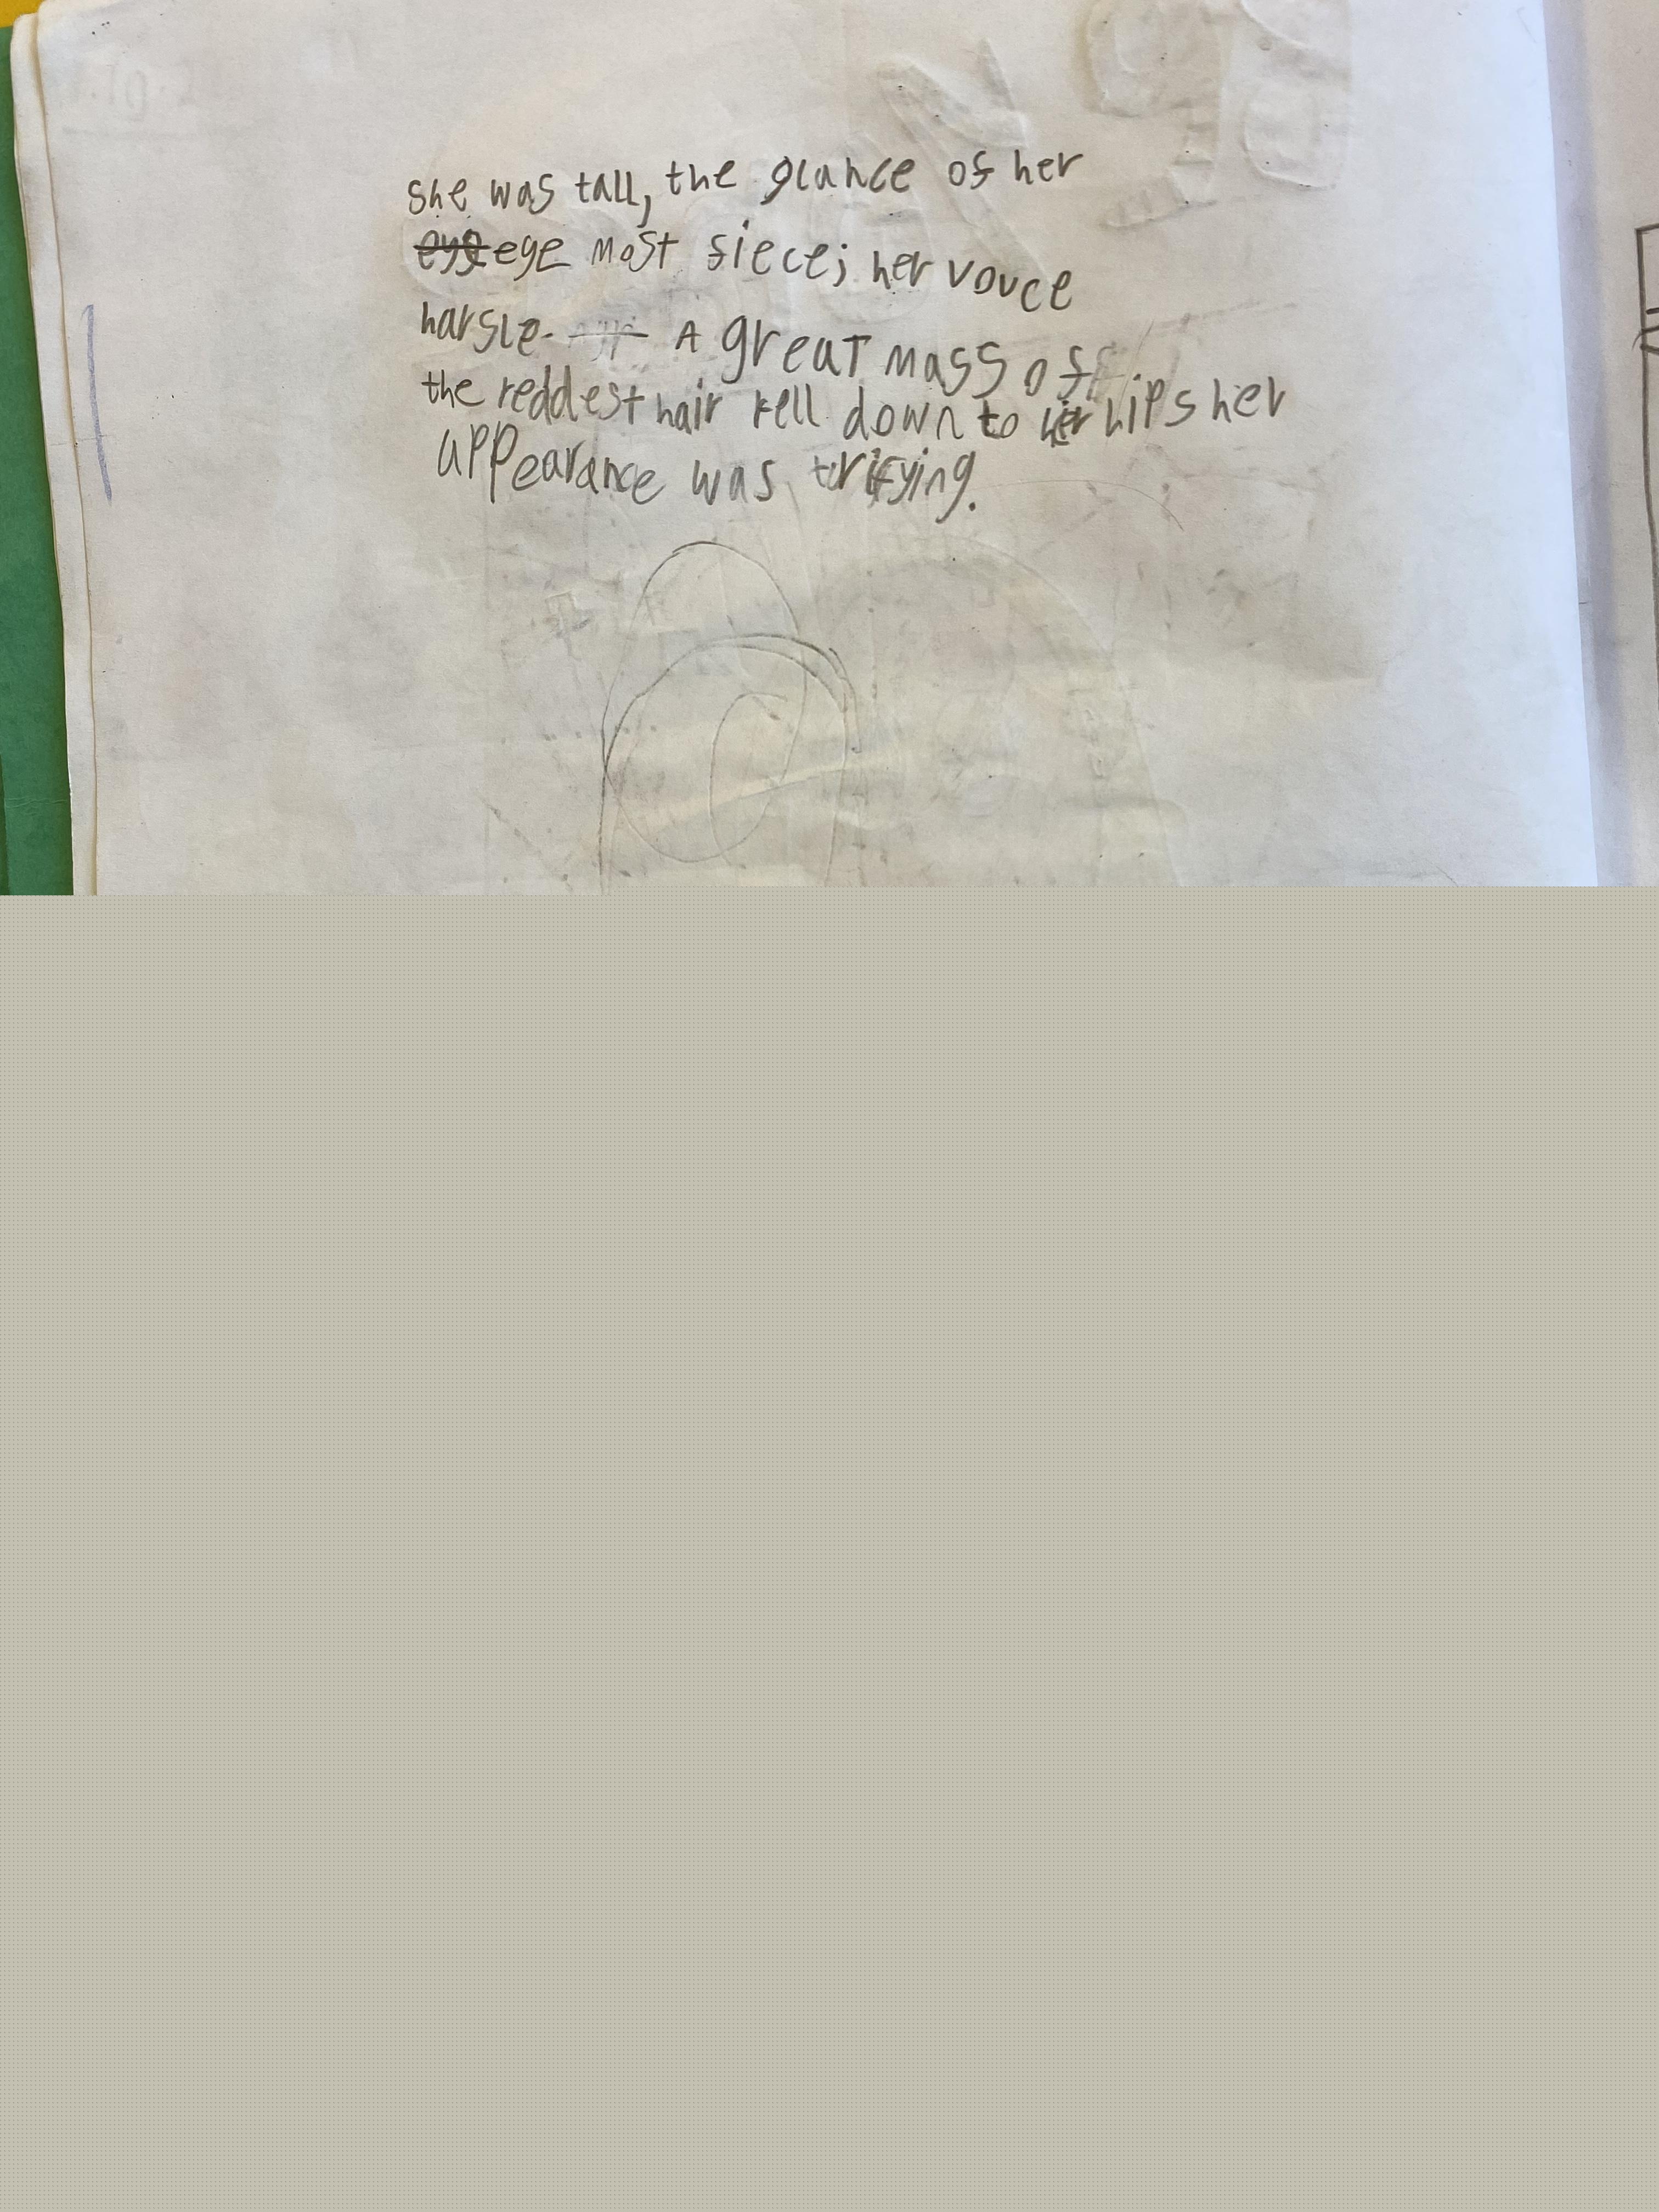 she was tall, the glance of her
eye eye most fiece; her vouce
harsle. A great mass of
the reddest hair fell down to her hips her
appearance was trifying.